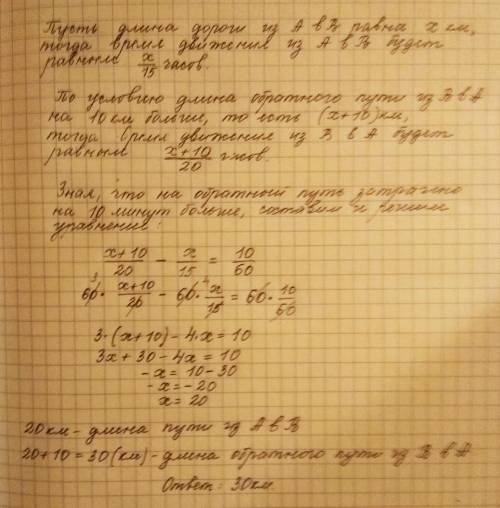 Пусть длина дороги из А в В равна x км,
тогда время движения из А в В будет
равным x/15 часов.
По условию длина обратного пути из В в А
на 10 км больше, то есть (x+10) км,
тогда время движения из В в А будет
равным x+10/20 часов.
Зная, что на обратный путь затрачено
на 10 минут больше, составим и решим
уравнение:
x+10/20 - x/15 = 10/60
3 4
60· x+10/20 - 60· x/15 = 60· 10/60
3·(x+10)-4·x=10
3x+30-4x=10
-x=10-30
-x=-20
x=20
20км-длина пути из А в В
20+10=30(км)-длина обратного пути из В в А
Ответ: 30км.